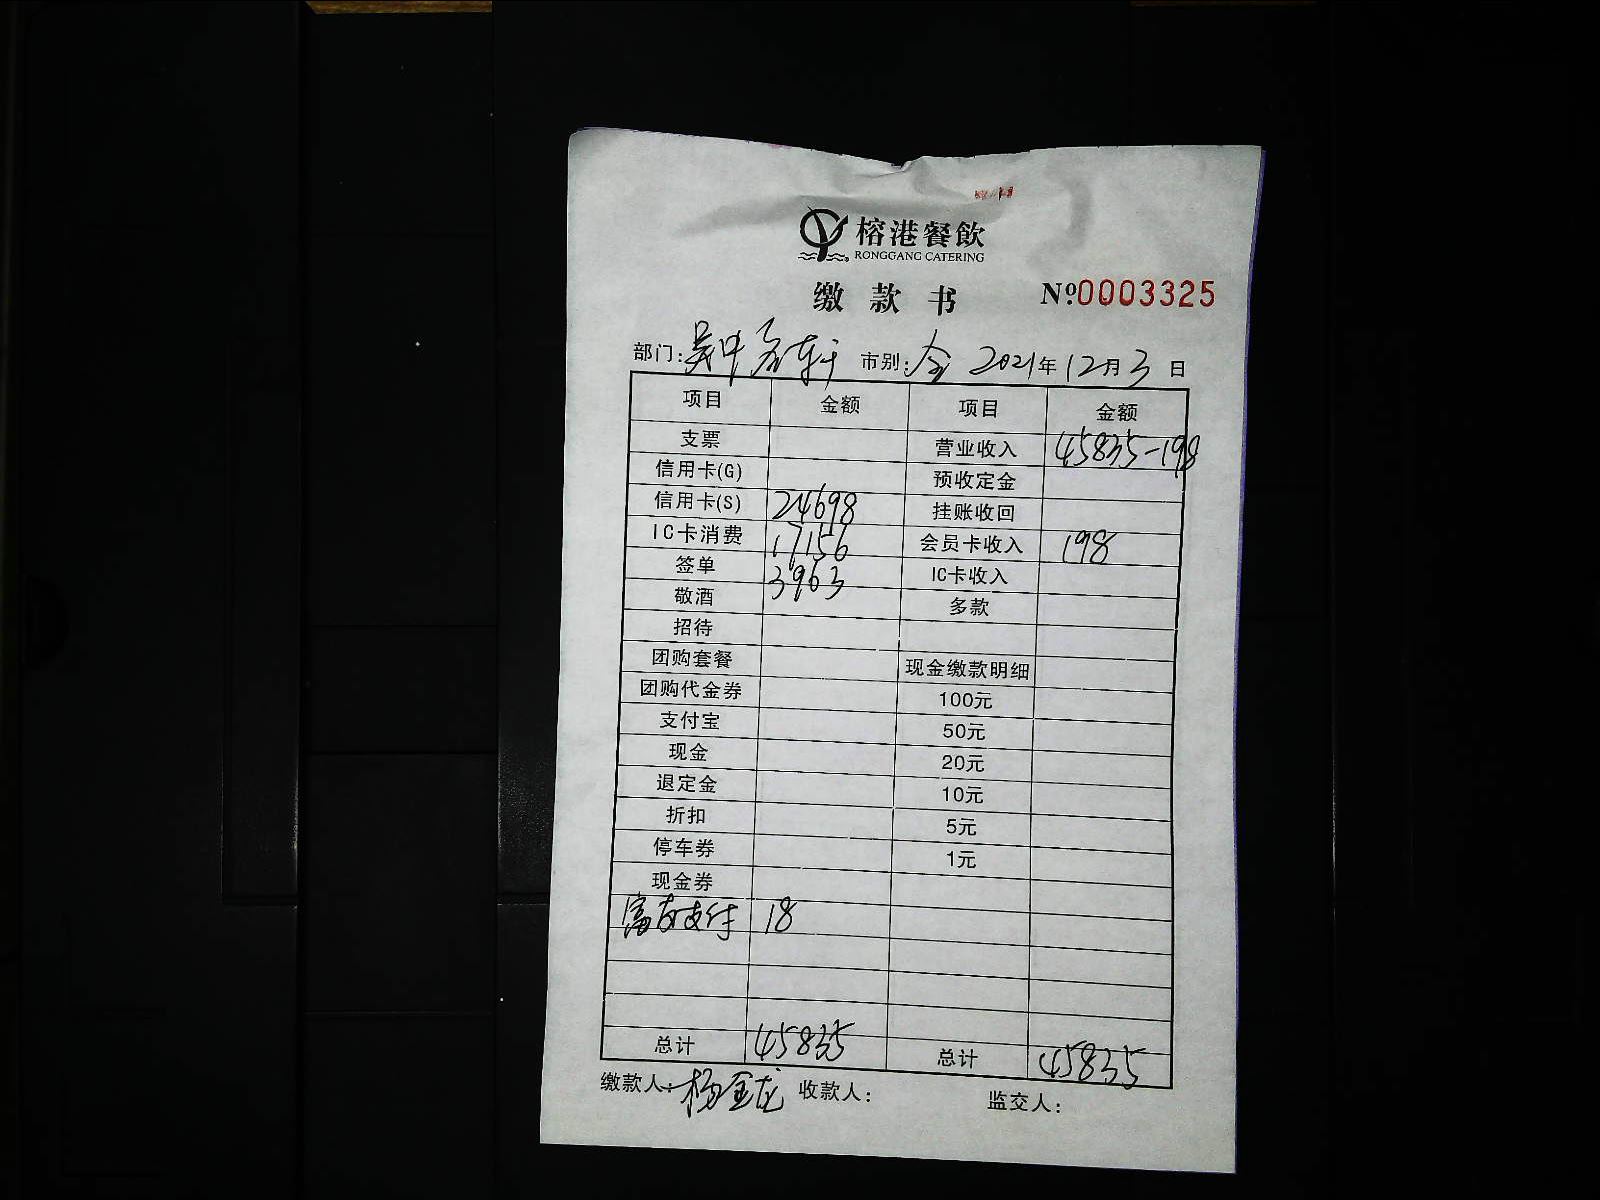 榕港餐飲
RONGGANG CATERING
缴款书 №0003325
部门:吴中名轩 市别:全 2021年12月3日
项目 金额 项目 金额
支票 营业收入 45835-198
信用卡(G) 预收定金
信用卡(S) 24698 挂账收回
IC卡消费 17156 会员卡收入 198
签单 3963 IC卡收入
敬酒 多款
招待
团购套餐 现金缴款明细
团购代金券 100元
支付宝 50元
现金 20元
退定金 10元
折扣 5元
停车券 1元
现金券
富友支付 18
总计 45835 总计 45835
缴款人:杨金龙 收款人: 监交人: